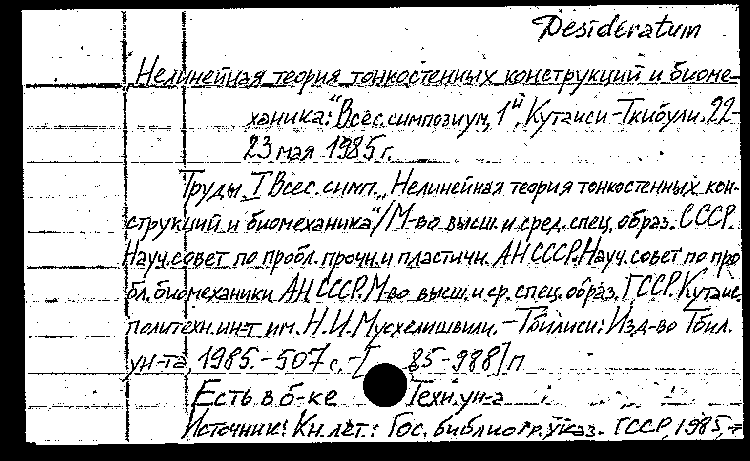 Desideratum
Нелинейная теория тонкостенных конструкций и биоме-
ханика: "Всес. симпозиум, 1", Кутаиси-Ткибули. 22-
23 мая 1985 г.
Труды I Всес. симп. „Нелинейная теория тонкостенных кон-
струкций и биомеханика"/М-во высш. и сред. спец. образ. СССР.
Науч. совет по пробл. прочн. и пластичн. АН СССР. Науч. совет по про
бл. биомеханики АН СССР. М-во высш. и ср. спец. образ. ГССР. Кутаис.
политехн. ин-т им. Н.И. Мусхелишвили. - Тбилиси: Изд-во Тбил.
ун-та, 1985. - 507 с. - [ 85-988] п
Есть в б-ке Техн. ун-а
Источник: Кн. лет.: Гос. библиогр. указ. ГССР, 1985, -